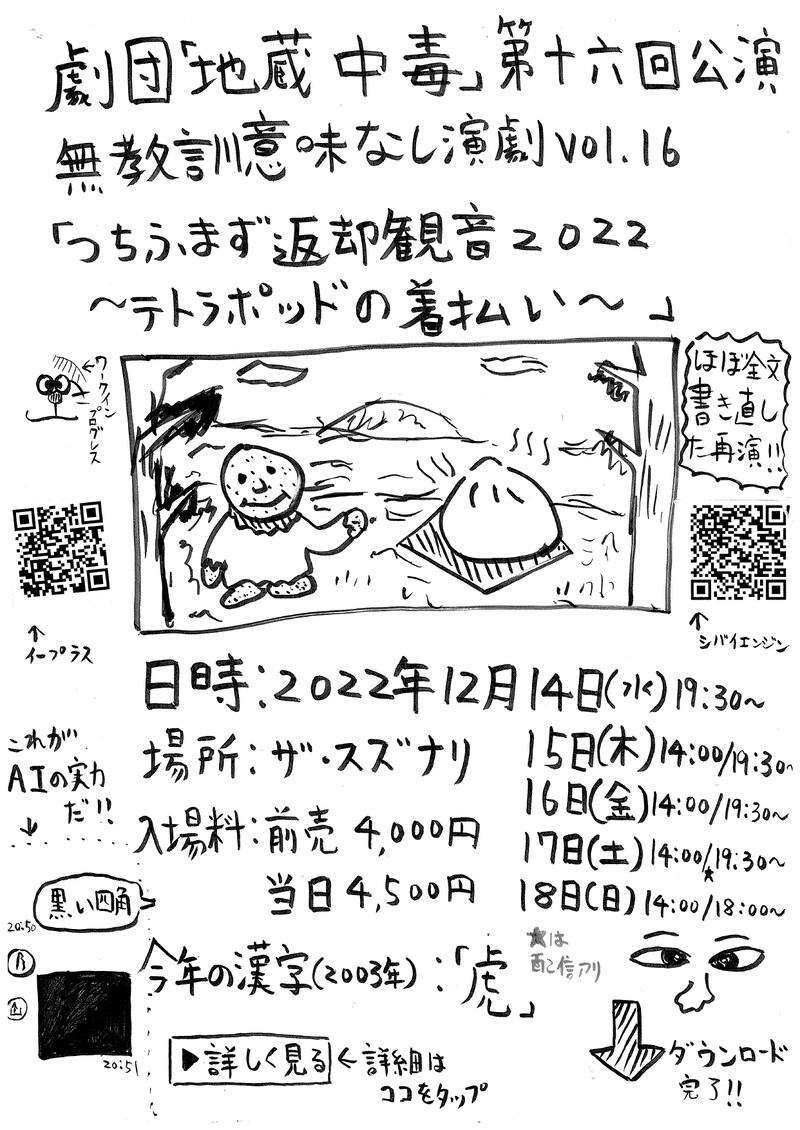 劇団「地蔵中毒」第十六回公演
無教訓意味なし演劇vol.16
「つちふまず返却観音2022
～テトラポッドの着払い～」
←ワークイン
プログレス
ほぼ全文
書き直し
た再演!!
↑
イープラス
↑
シバイエンジン
日時：2022年12月14日(水)19:30～
15日(木)14:00/19:30～
16日(金)14:00/19:30～
17日(土)14:00/19:30～
★
18日(日)14:00/18:00～
★は
配信アリ
場所：ザ・スズナリ
入場料：前売 4,000円
当日 4,500円
これが
AIの実力
だ!!
↓
黒い四角
20:50
20:51
今年の漢字(2003年)：「虎」
▶詳しく見る
←詳細は
ココをタップ
ダウンロード
完了!!